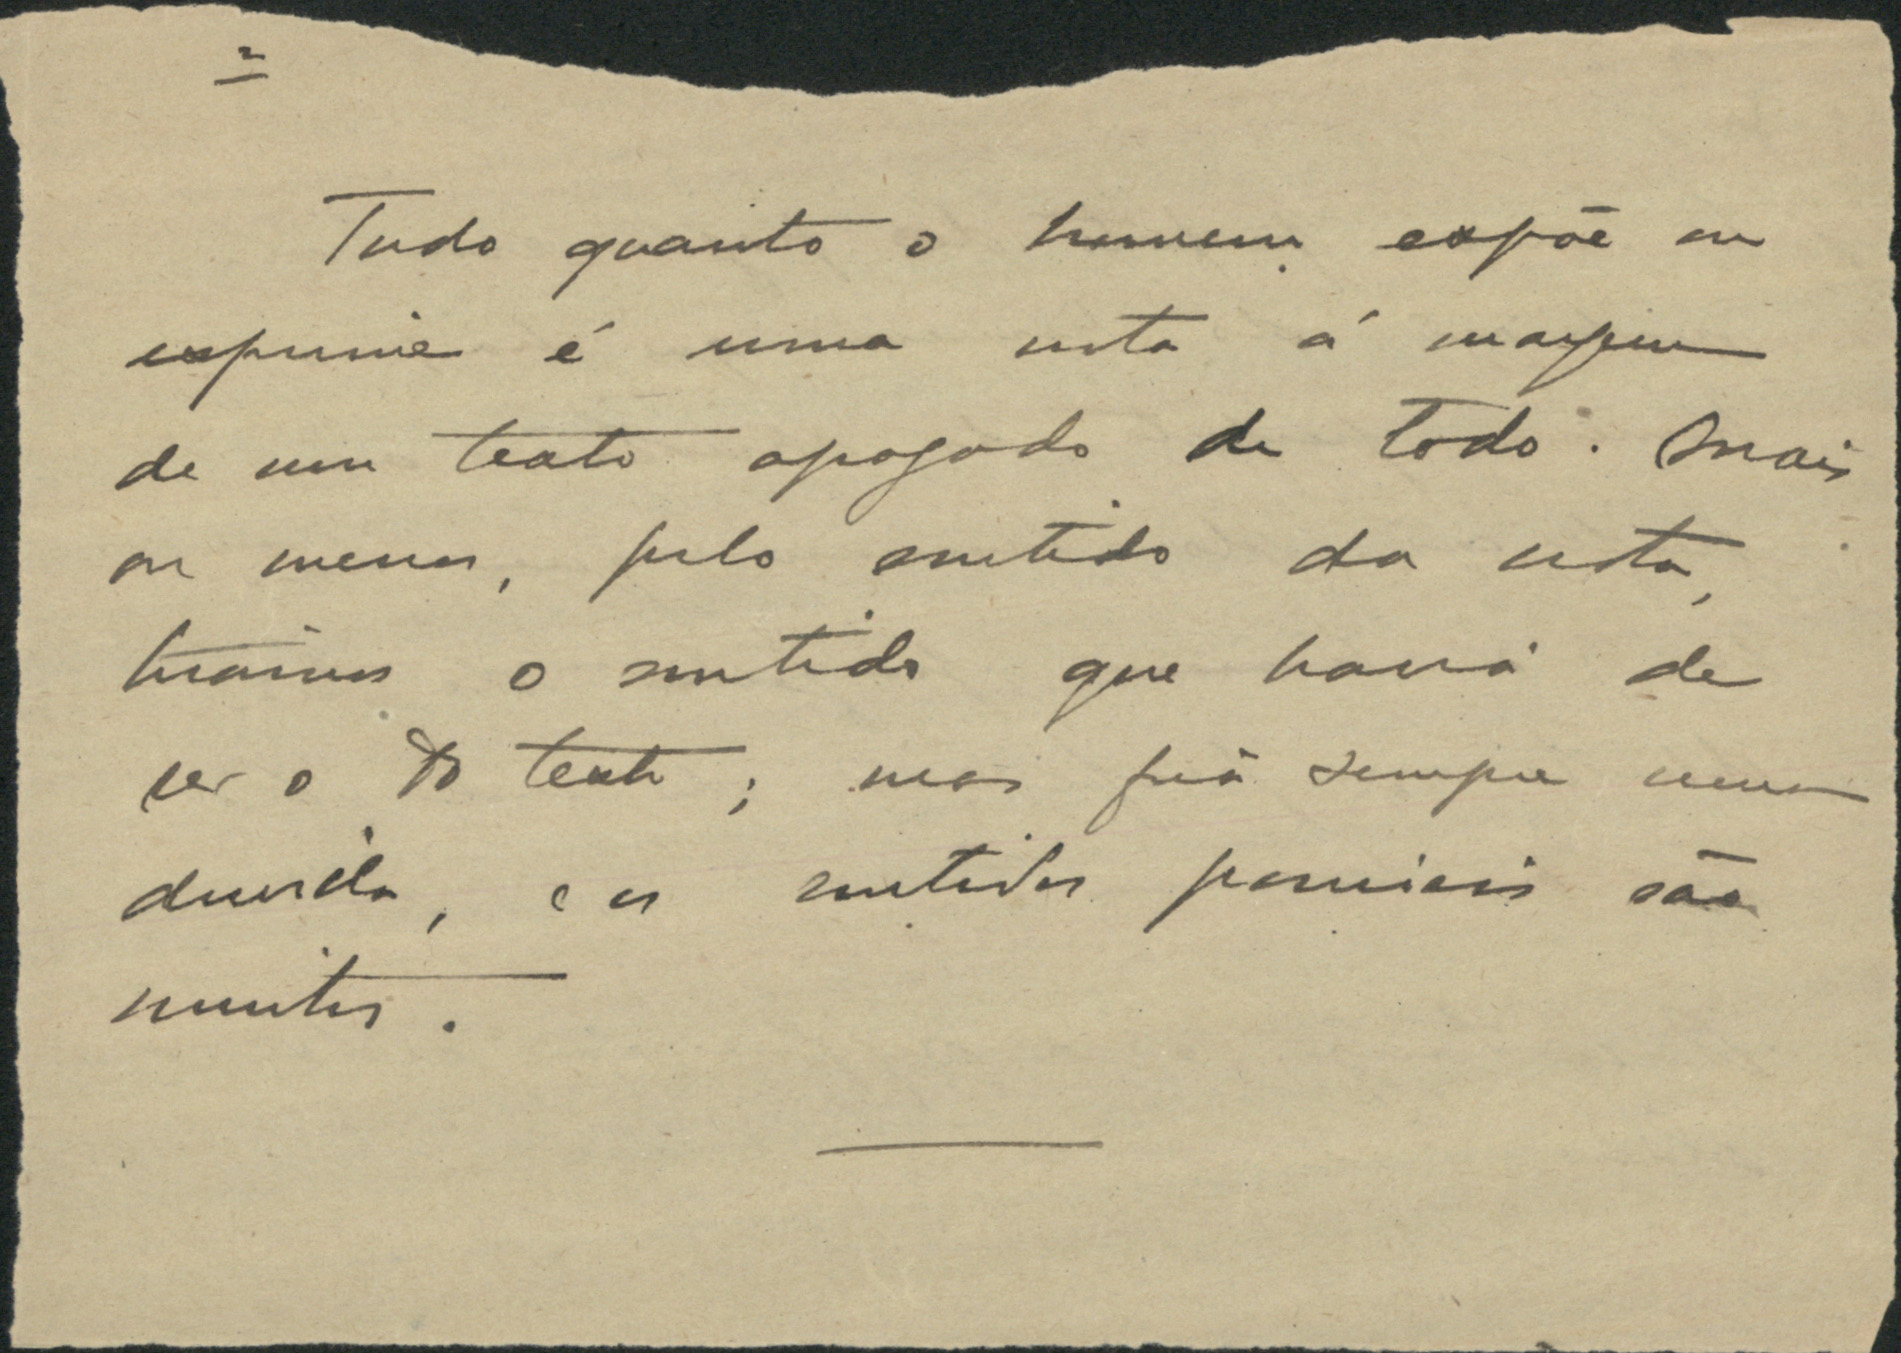 2
Tudo quanto o homem expõe ou
exprime é uma nota á margem
de um texto apagado de todo. Mais
ou menos, pelo sentido da nota,
tiramos o sentido que havia de
ser o do texto; mas fica sempre uma
duvida, e os sentidos possiveis são
muitos.